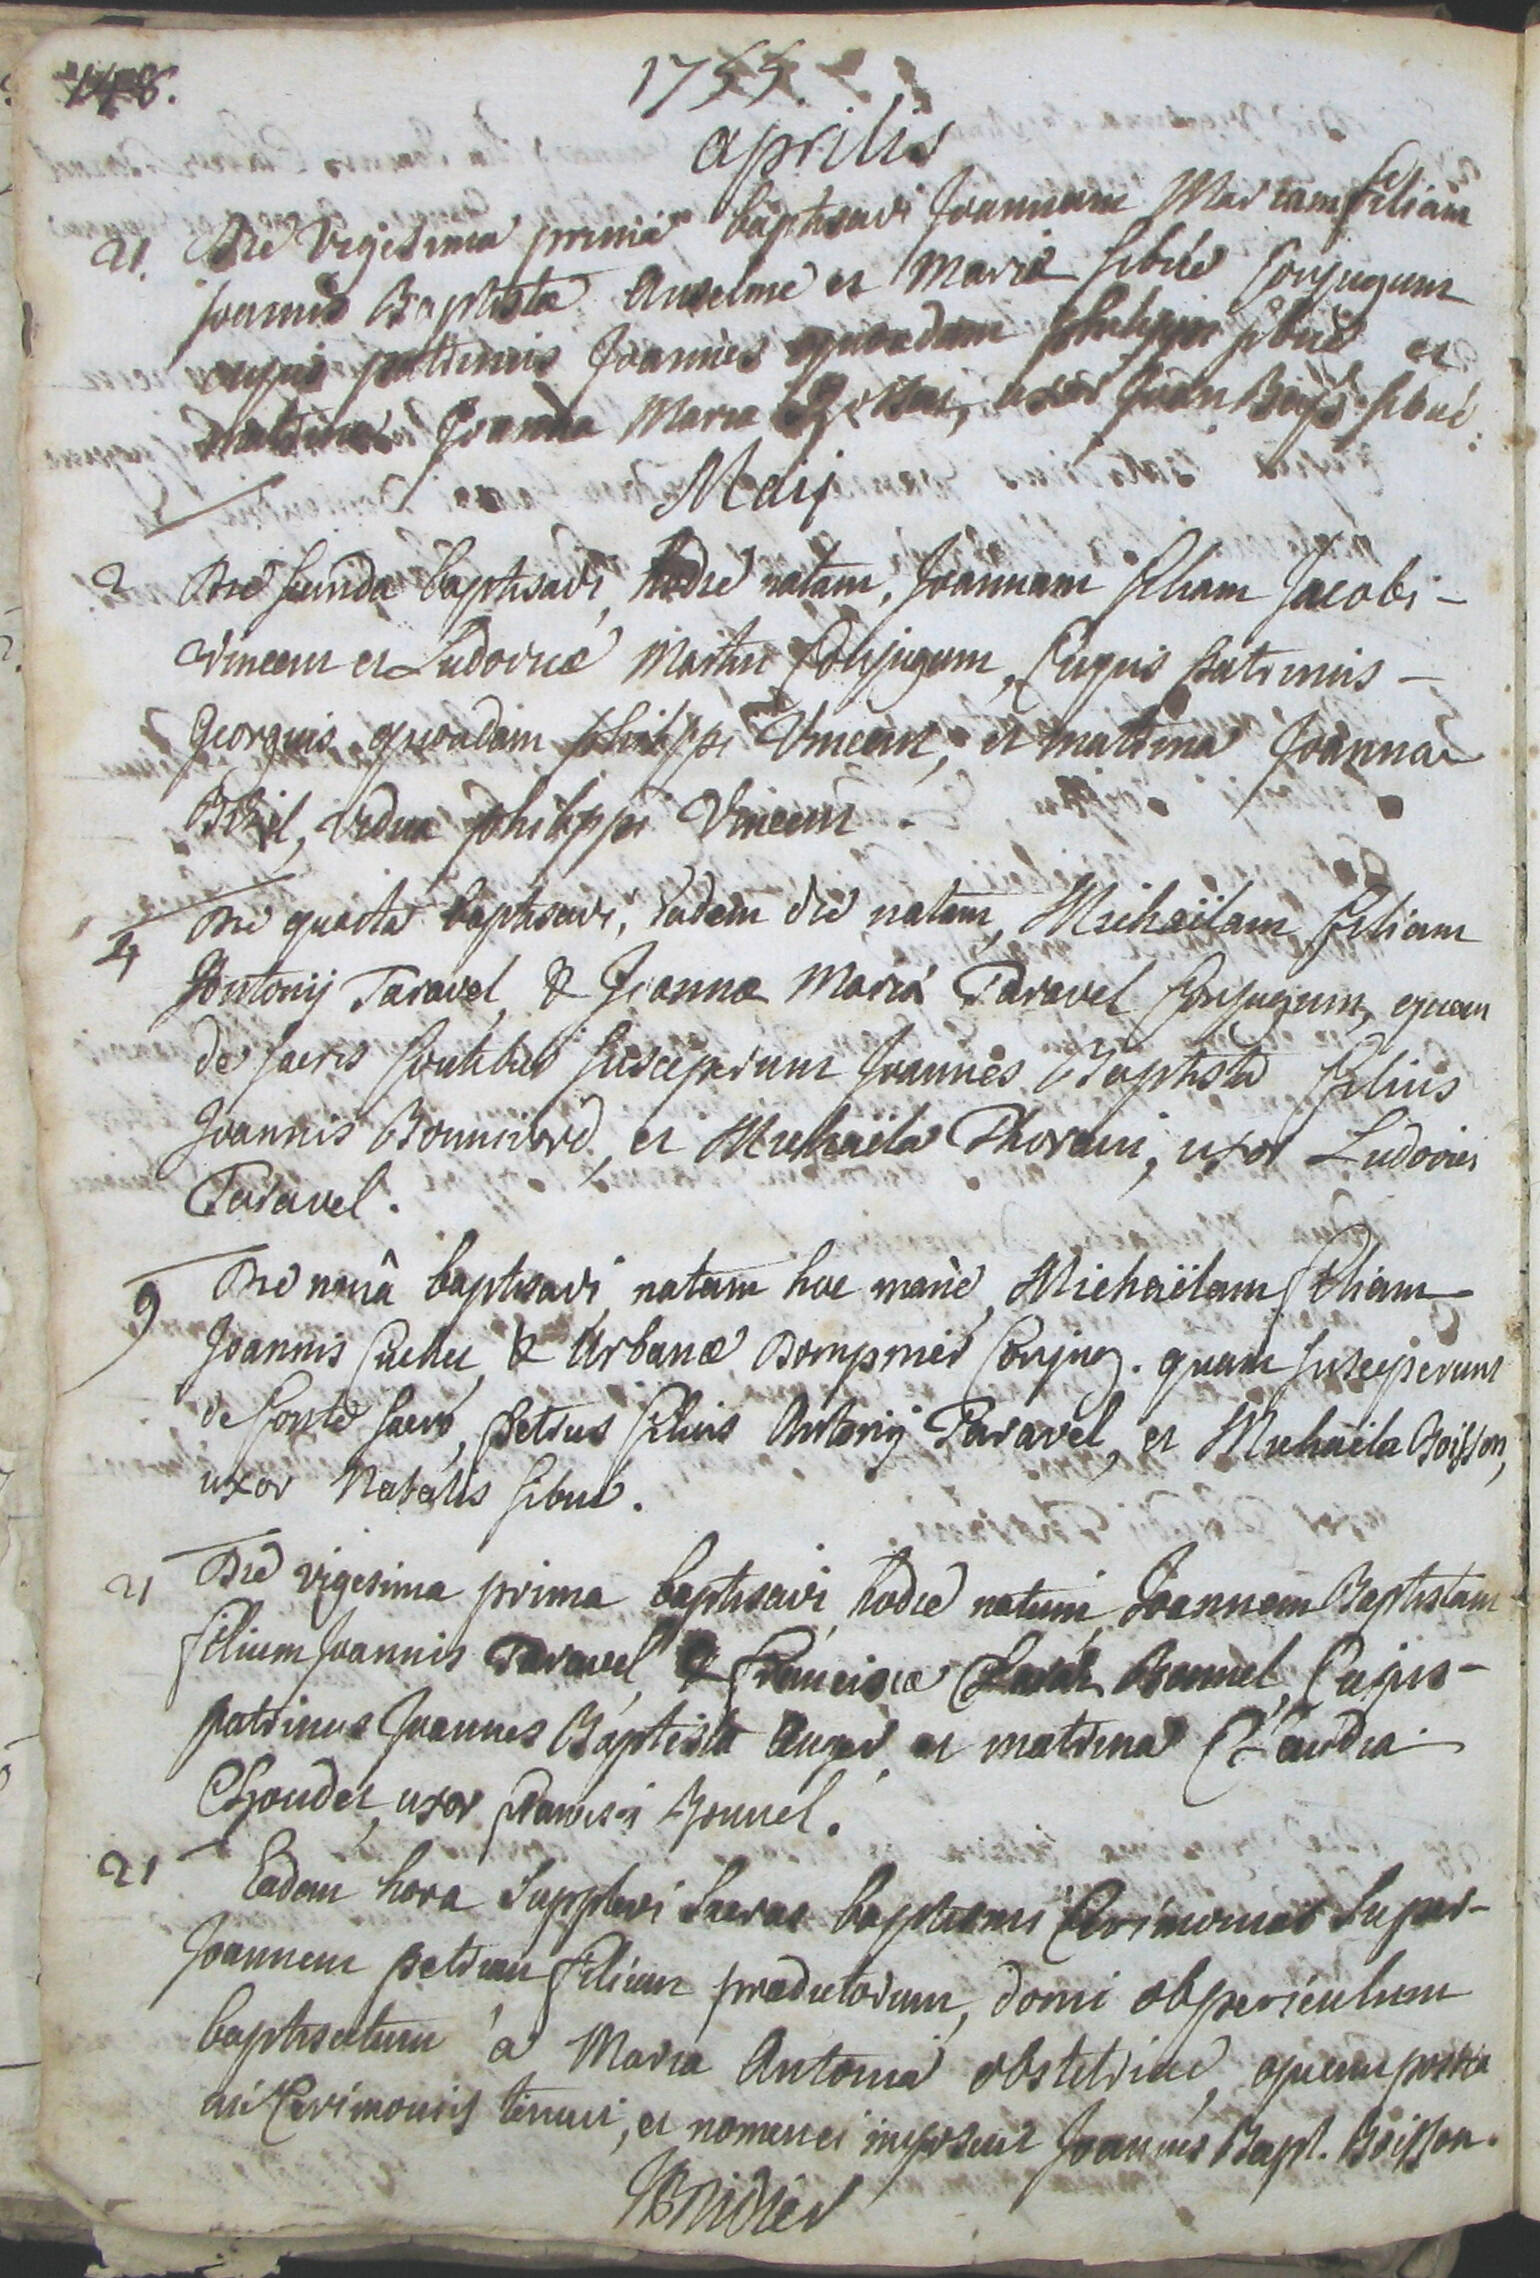 148.
1755.
aprilis
21. Die vigesima primâ baptisavi Joannam Mariam filiam
Joannis Baptistæ Anselme et Mariæ Sibué Conjugum
cujus patrinus Joannes quondam philippi sibué et
matrina Joanna Maria uxor Joan Bapt. sibué.
Maij
2 Die secunda baptisavi, hodie natam, Joannam filiam Jacobi -
Vincent et Ludovicæ Martin Conjugum, Cujus patrinus -
Georgius quondam philippi Vincent, et matrina Joanna
vidua philippi Vincent.
4 Die quarta baptisavi, eadem die natam, Michaëlam filiam
Antonij Taravel, & Joannæ Mariæ Taravel Conjugum, quam
de sacris fontibus susceperunt Joannes Baptista filius
Joannis Bonnivard, et Michaëla Thorain, uxor Ludovici
Taravel.
9 Die nonâ baptisavi, natam hoc mane, Michaëlam filiam
Joannis Cuchet, & Urbanæ Dompmier Conjug. quam susceperunt
de fonte sacro, petrus filius Antonij Taravel, et Michaëla Boisson,
uxor Natalis sibué.
21 Die vigesima prima baptisavi, hodie natum, Joannem Baptistam
filium Joannis Taravel, & franciscæ Bonnel, Cujus -
patrinus Joannes Baptista Auger, et matrina Claudia
Choudet, uxor francisci Bonnel.
21 Eadem hora supplevi sacras baptismi Cerimonias super -
Joannem petrum filium prædictorum, domi ob periculum
baptisatum a Maria Antonia obstetrice, quem postea
in Cerimoniis tenuit, et nomen ei imposuit Joannes Bapt. Boisson.